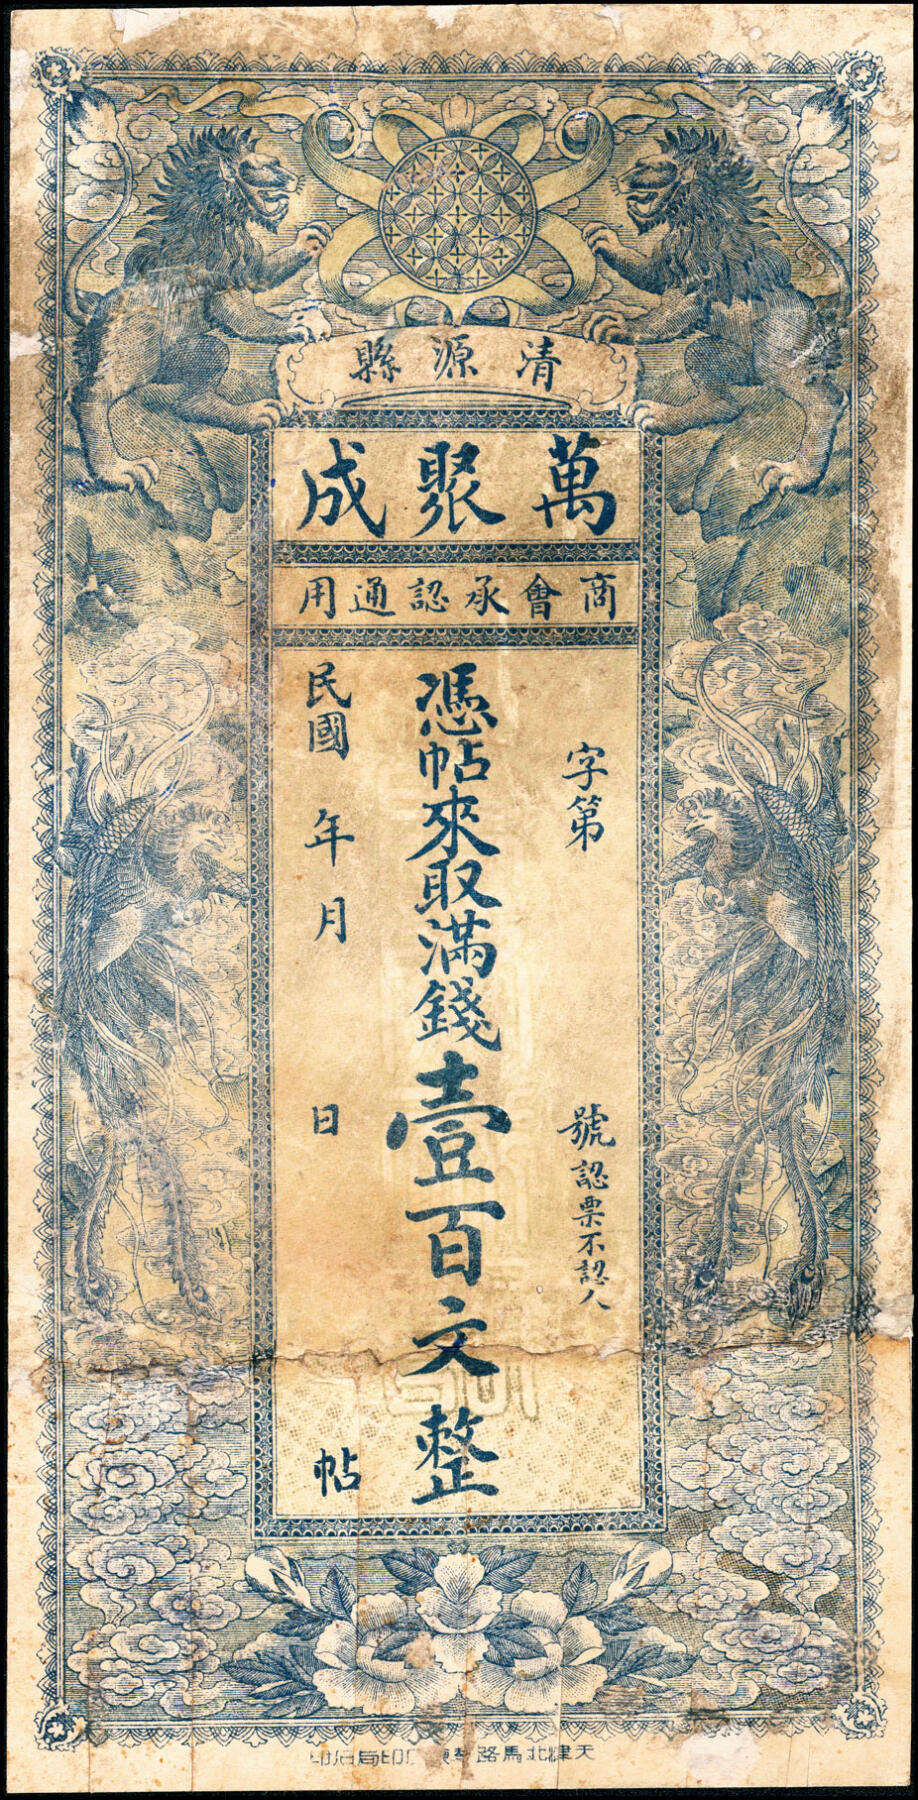 清源縣
萬聚成
商會承認通用
字第 號認票不認人
憑帖來取滿錢壹百文整
民國 年 月 日 帖
天津北馬路 印局石印